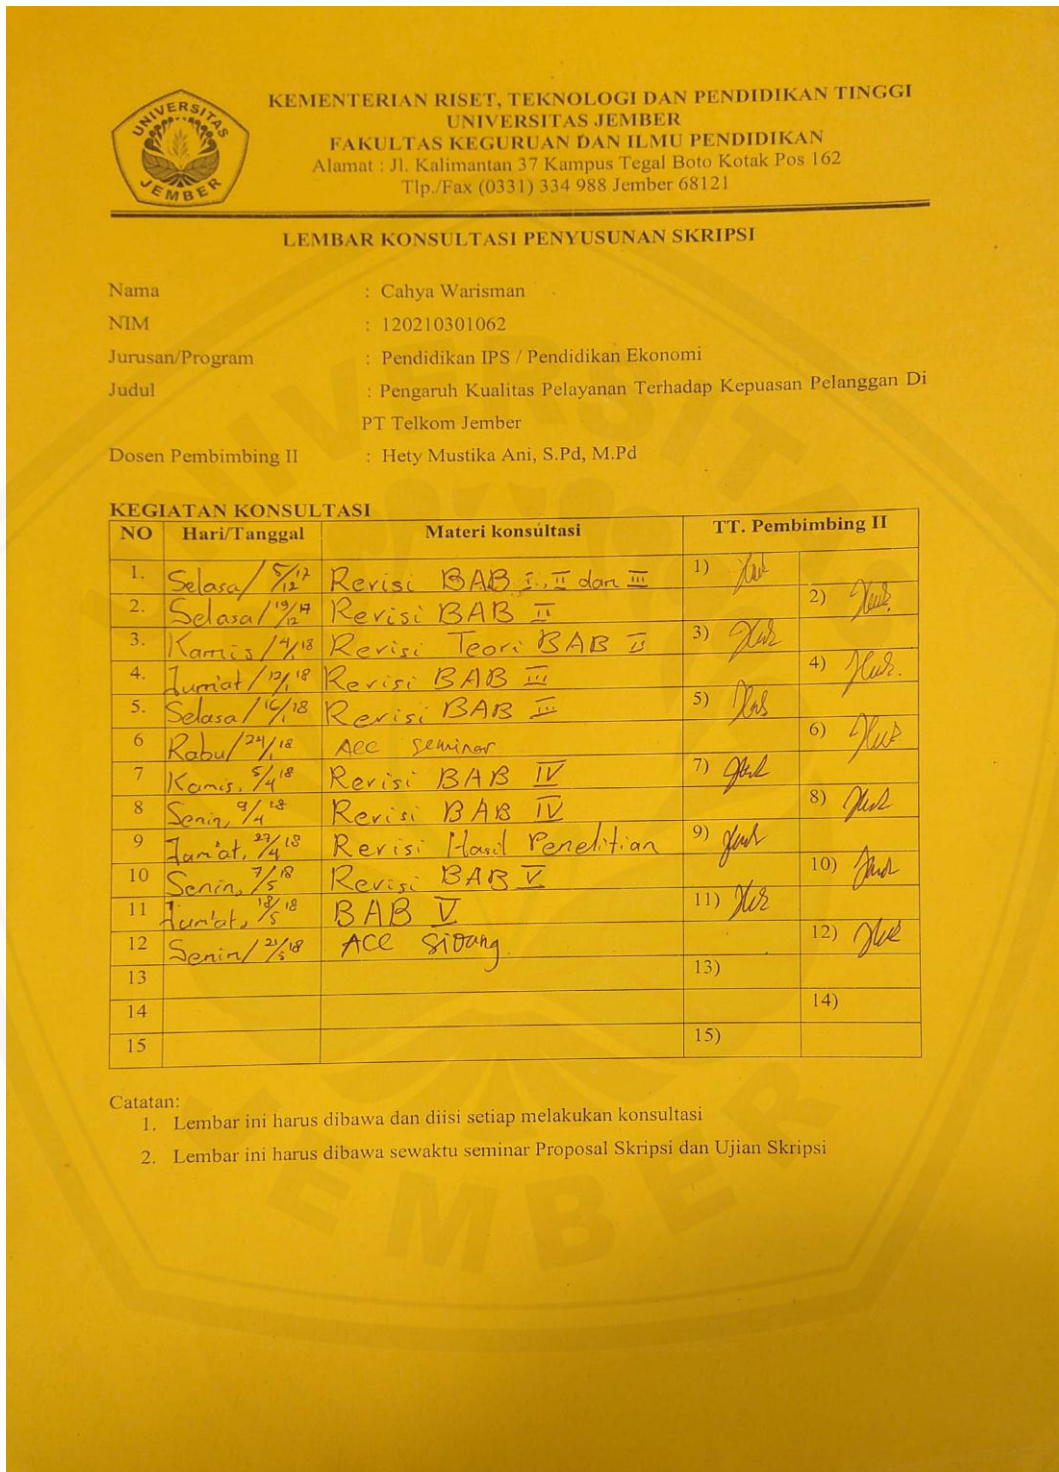 UNIVERSITAS
JEMBER
KEMENTERIAN RISET, TEKNOLOGI DAN PENDIDIKAN TINGGI
UNIVERSITAS JEMBER
FAKULTAS KEGURUAN DAN ILMU PENDIDIKAN
Alamat : Jl. Kalimantan 37 Kampus Tegal Boto Kotak Pos 162
Tlp./Fax (0331) 334 988 Jember 68121
LEMBAR KONSULTASI PENYUSUNAN SKRIPSI
Nama : Cahya Warisman
NIM : 120210301062
Jurusan/Program : Pendidikan IPS / Pendidikan Ekonomi
Judul : Pengaruh Kualitas Pelayanan Terhadap Kepuasan Pelanggan Di
PT Telkom Jember
Dosen Pembimbing II : Hety Mustika Ani, S.Pd, M.Pd
KEGIATAN KONSULTASI
NO Hari/Tanggal Materi konsultasi TT. Pembimbing II
1. Selasa/ 5/12 17 Revisi BAB I, II dan III 1)
2. Selasa/ 19/12 17 Revisi BAB II 2)
3. Kamis/ 4/1 18 Revisi Teori BAB II 3)
4. Jum'at/ 12/1 18 Revisi BAB III 4)
5. Selasa/ 16/1 18 Revisi BAB III 5)
6 Rabu/ 24/1 18 Acc seminar 6)
7 Kamis, 5/4 18 Revisi BAB IV 7)
8 Senin, 9/4 18 Revisi BAB IV 8)
9 Jum'at, 27/4 18 Revisi Hasil Penelitian 9)
10 Senin, 7/5 18 Revisi BAB V 10)
11 Jum'at, 18/5 18 BAB V 11)
12 Senin/ 21/5 18 Acc Sidang 12)
13 13)
14 14)
15 15)
Catatan:
1. Lembar ini harus dibawa dan diisi setiap melakukan konsultasi
2. Lembar ini harus dibawa sewaktu seminar Proposal Skripsi dan Ujian Skripsi